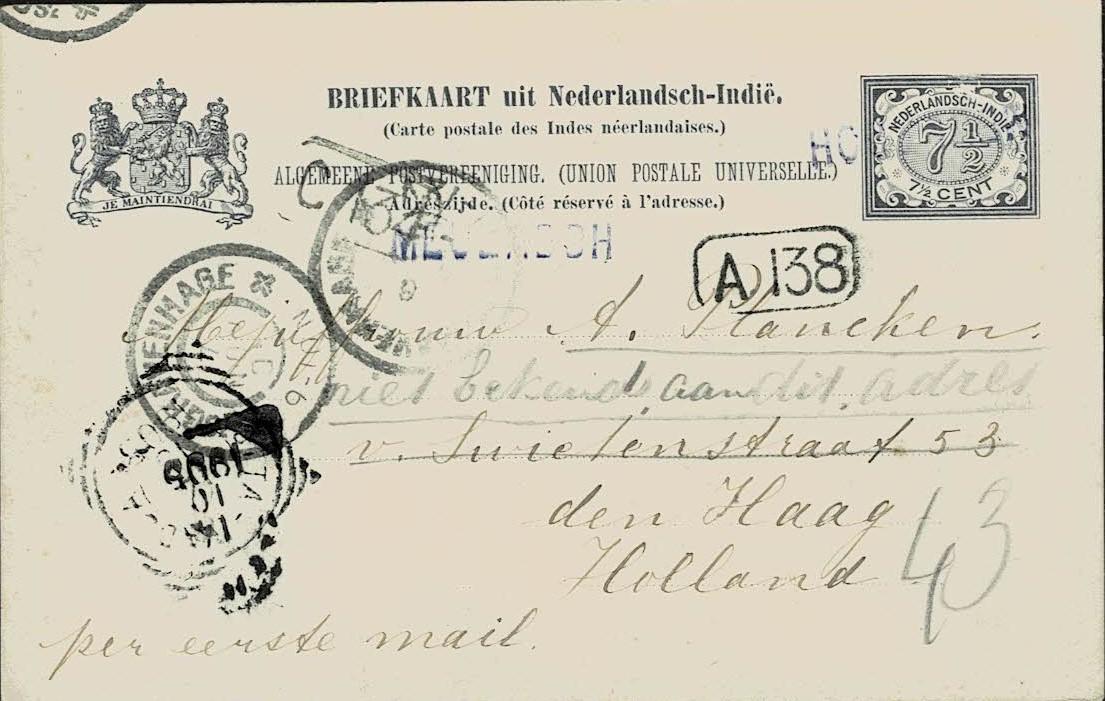 BRIEFKAART uit Nederlandsch-Indië.
(Carte postale des Indes néerlandaises.)
ALGEMEENE POSTVEREENIGING. (UNION POSTALE UNIVERSELLE.)
Adreszijde. (Côté réservé à l'adresse.)
JE MAINTIENDRAI
NEDERLANDSCH-INDIË
7½
7½ CENT
A 138
Mejufvrouw A. Plancken.
niet bekend aan dit adres
v. Swietenstraat 53
den Haag
43
Holland
per eerste mail.